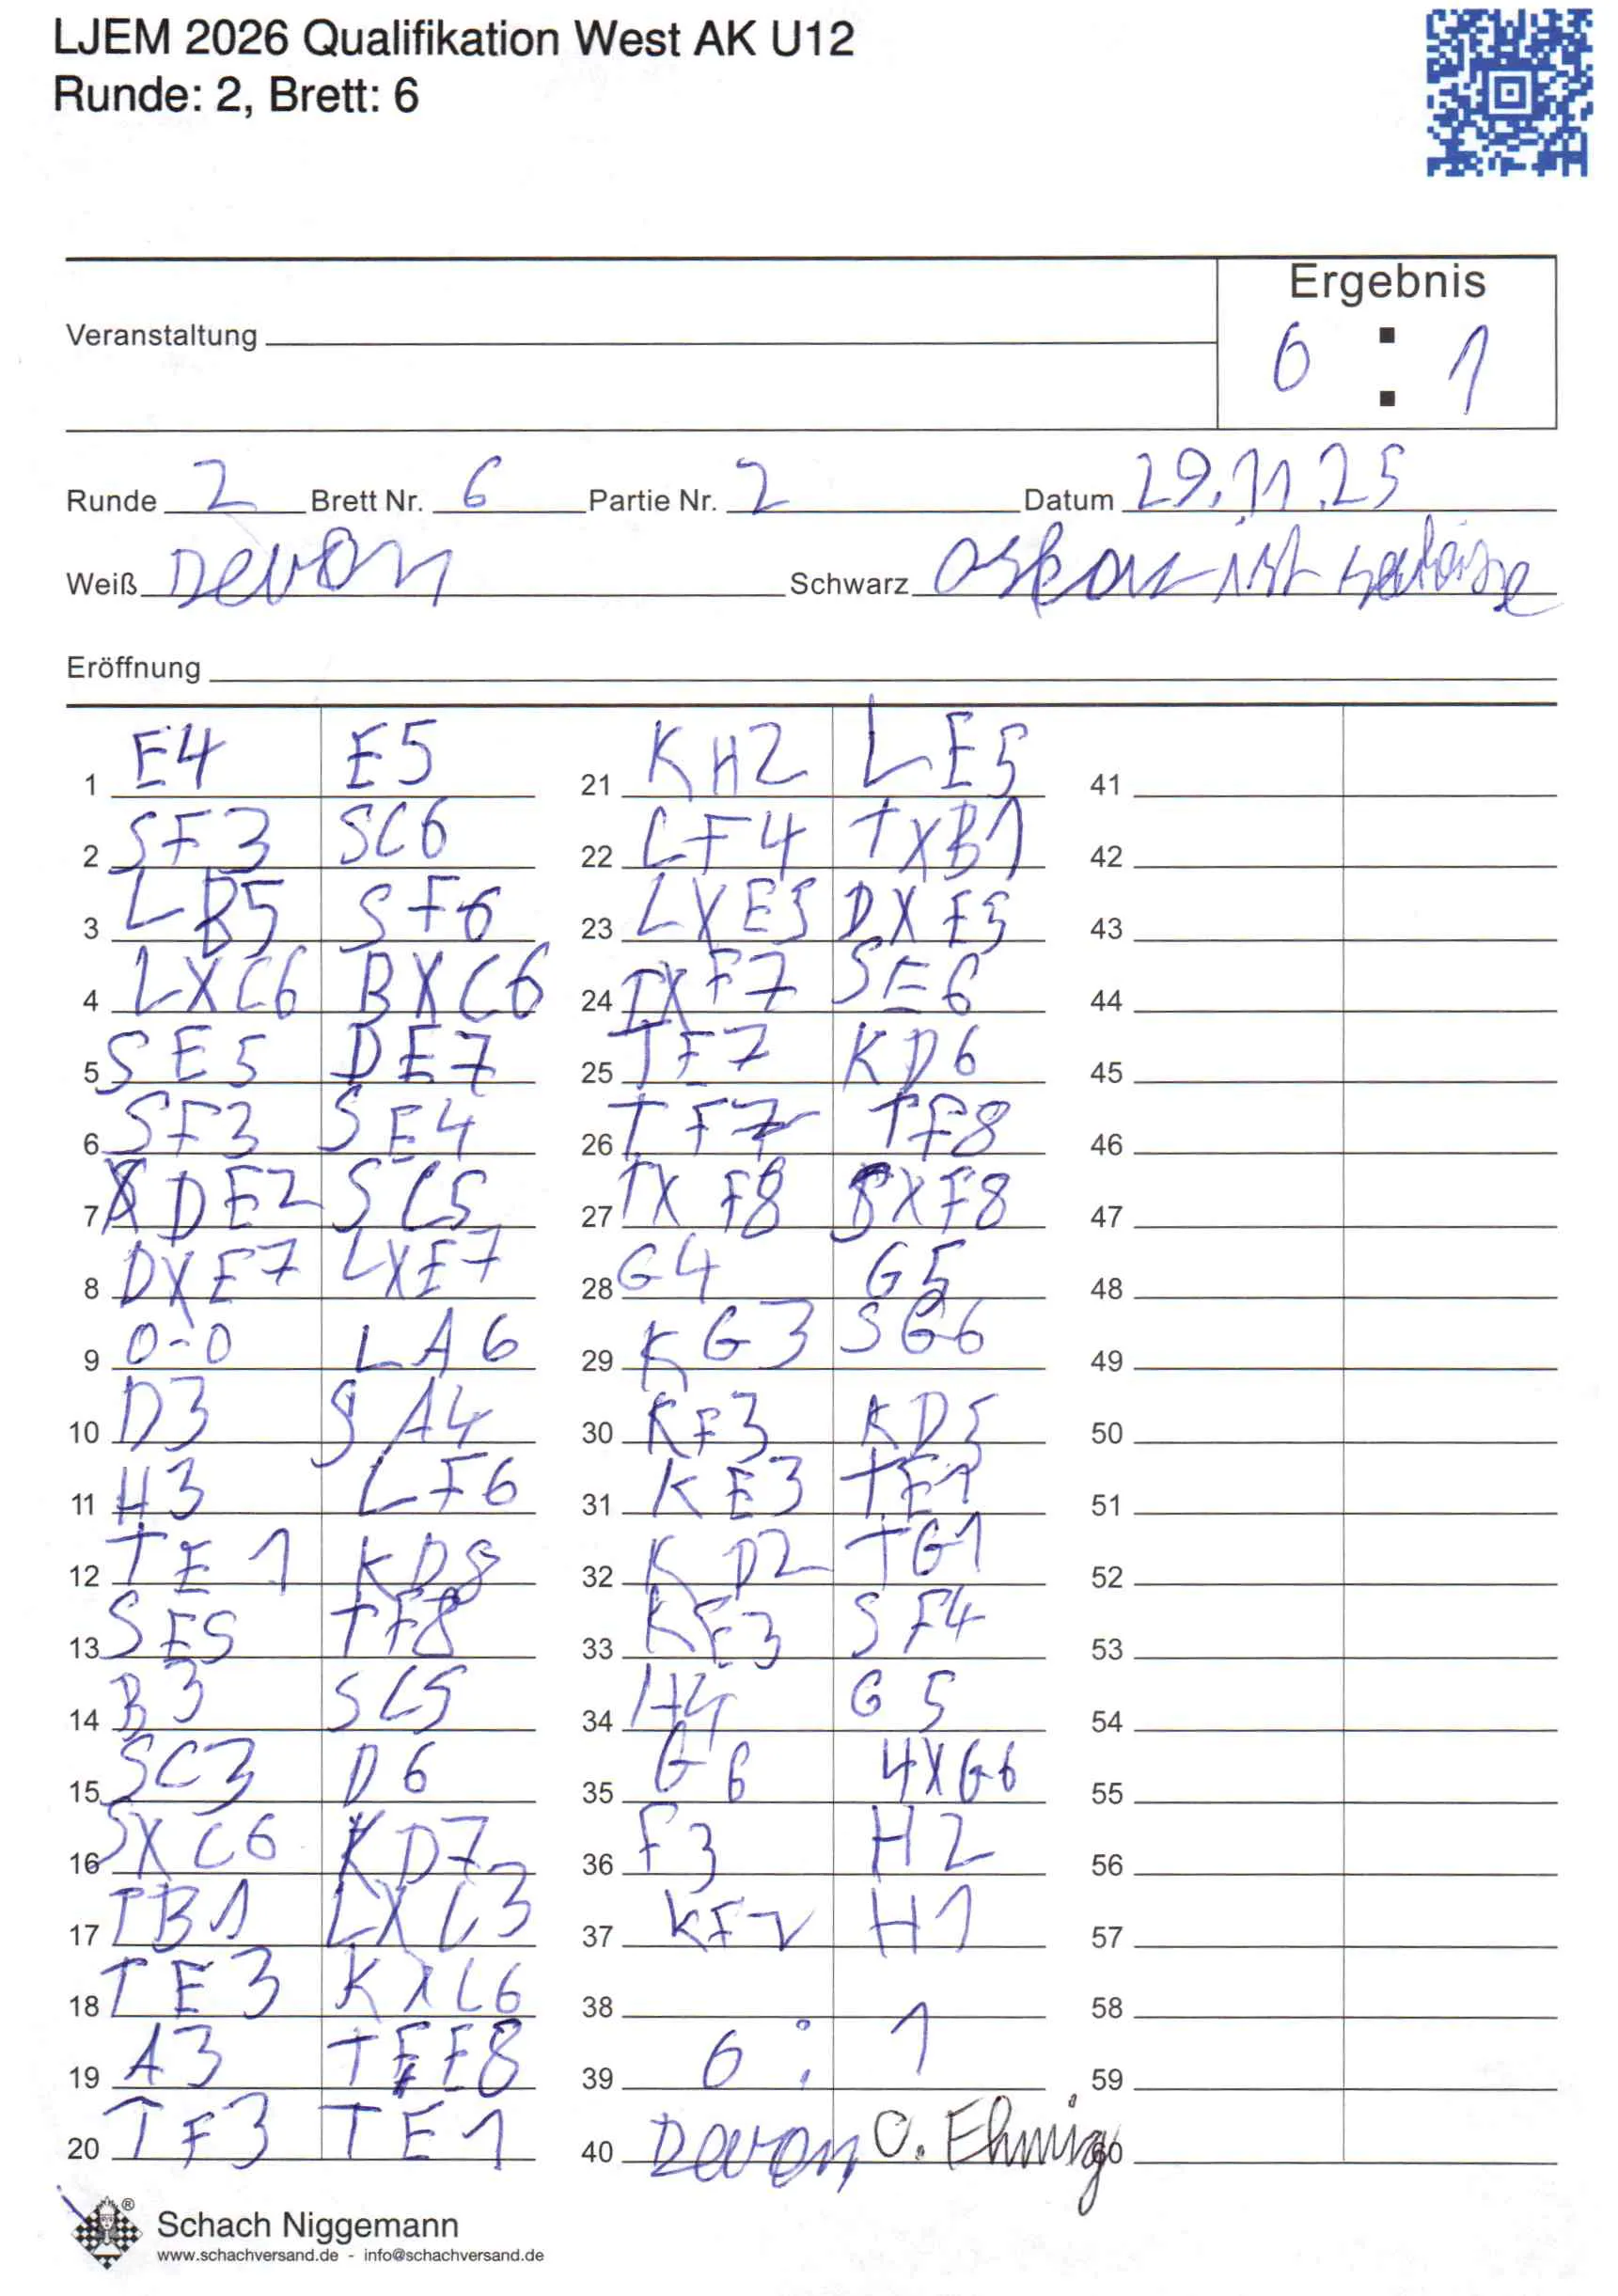 LJEM 2026 Qualifikation West AK U12
Runde: 2, Brett: 6
Ergebnis
Veranstaltung
6 : 1
Runde 2 Brett Nr. 6 Partie Nr. 2 Datum 29.11.25
Weiß Devon Schwarz Oskar ist
Eröffnung
1 E4 E5
2 SF3 SC6
3 LB5 SF6
4 LXC6 BXC6
5 SE5 DE7
6 SF3 SE4
7 DE2 SC5
8 DXE7 LXE7
9 0-0 LA6
10 D3 SA4
11 H3 LF6
12 TE1 KD8
13 SE5 TF8
14 B3 SC5
15 SC3 D6
16 SXC6 KD7
17 TB1 LXC3
18 TE3 KXC6
19 A3 TFE8
20 TF3 TE1
21 KH2 LE5
22 LF4 TXB1
23 LXE5 DXE5
24 TXF7 SE6
25 TE7 KD6
26 TF7 TF8
27 TXF8 SXF8
28 G4 G5
29 KG3 SG6
30 KF3 KD5
31 KE3 TE1
32 KD2 TG1
33 KE3 SF4
34 H4 G5
35 G6 4XG6
36 F3 H2
37 KF2 H1
38
39 6 : 1
40 Devon O. Ehmig
41
42
43
44
45
46
47
48
49
50
51
52
53
54
55
56
57
58
59
60
Schach Niggemann
www.schachversand.de - info@schachversand.de